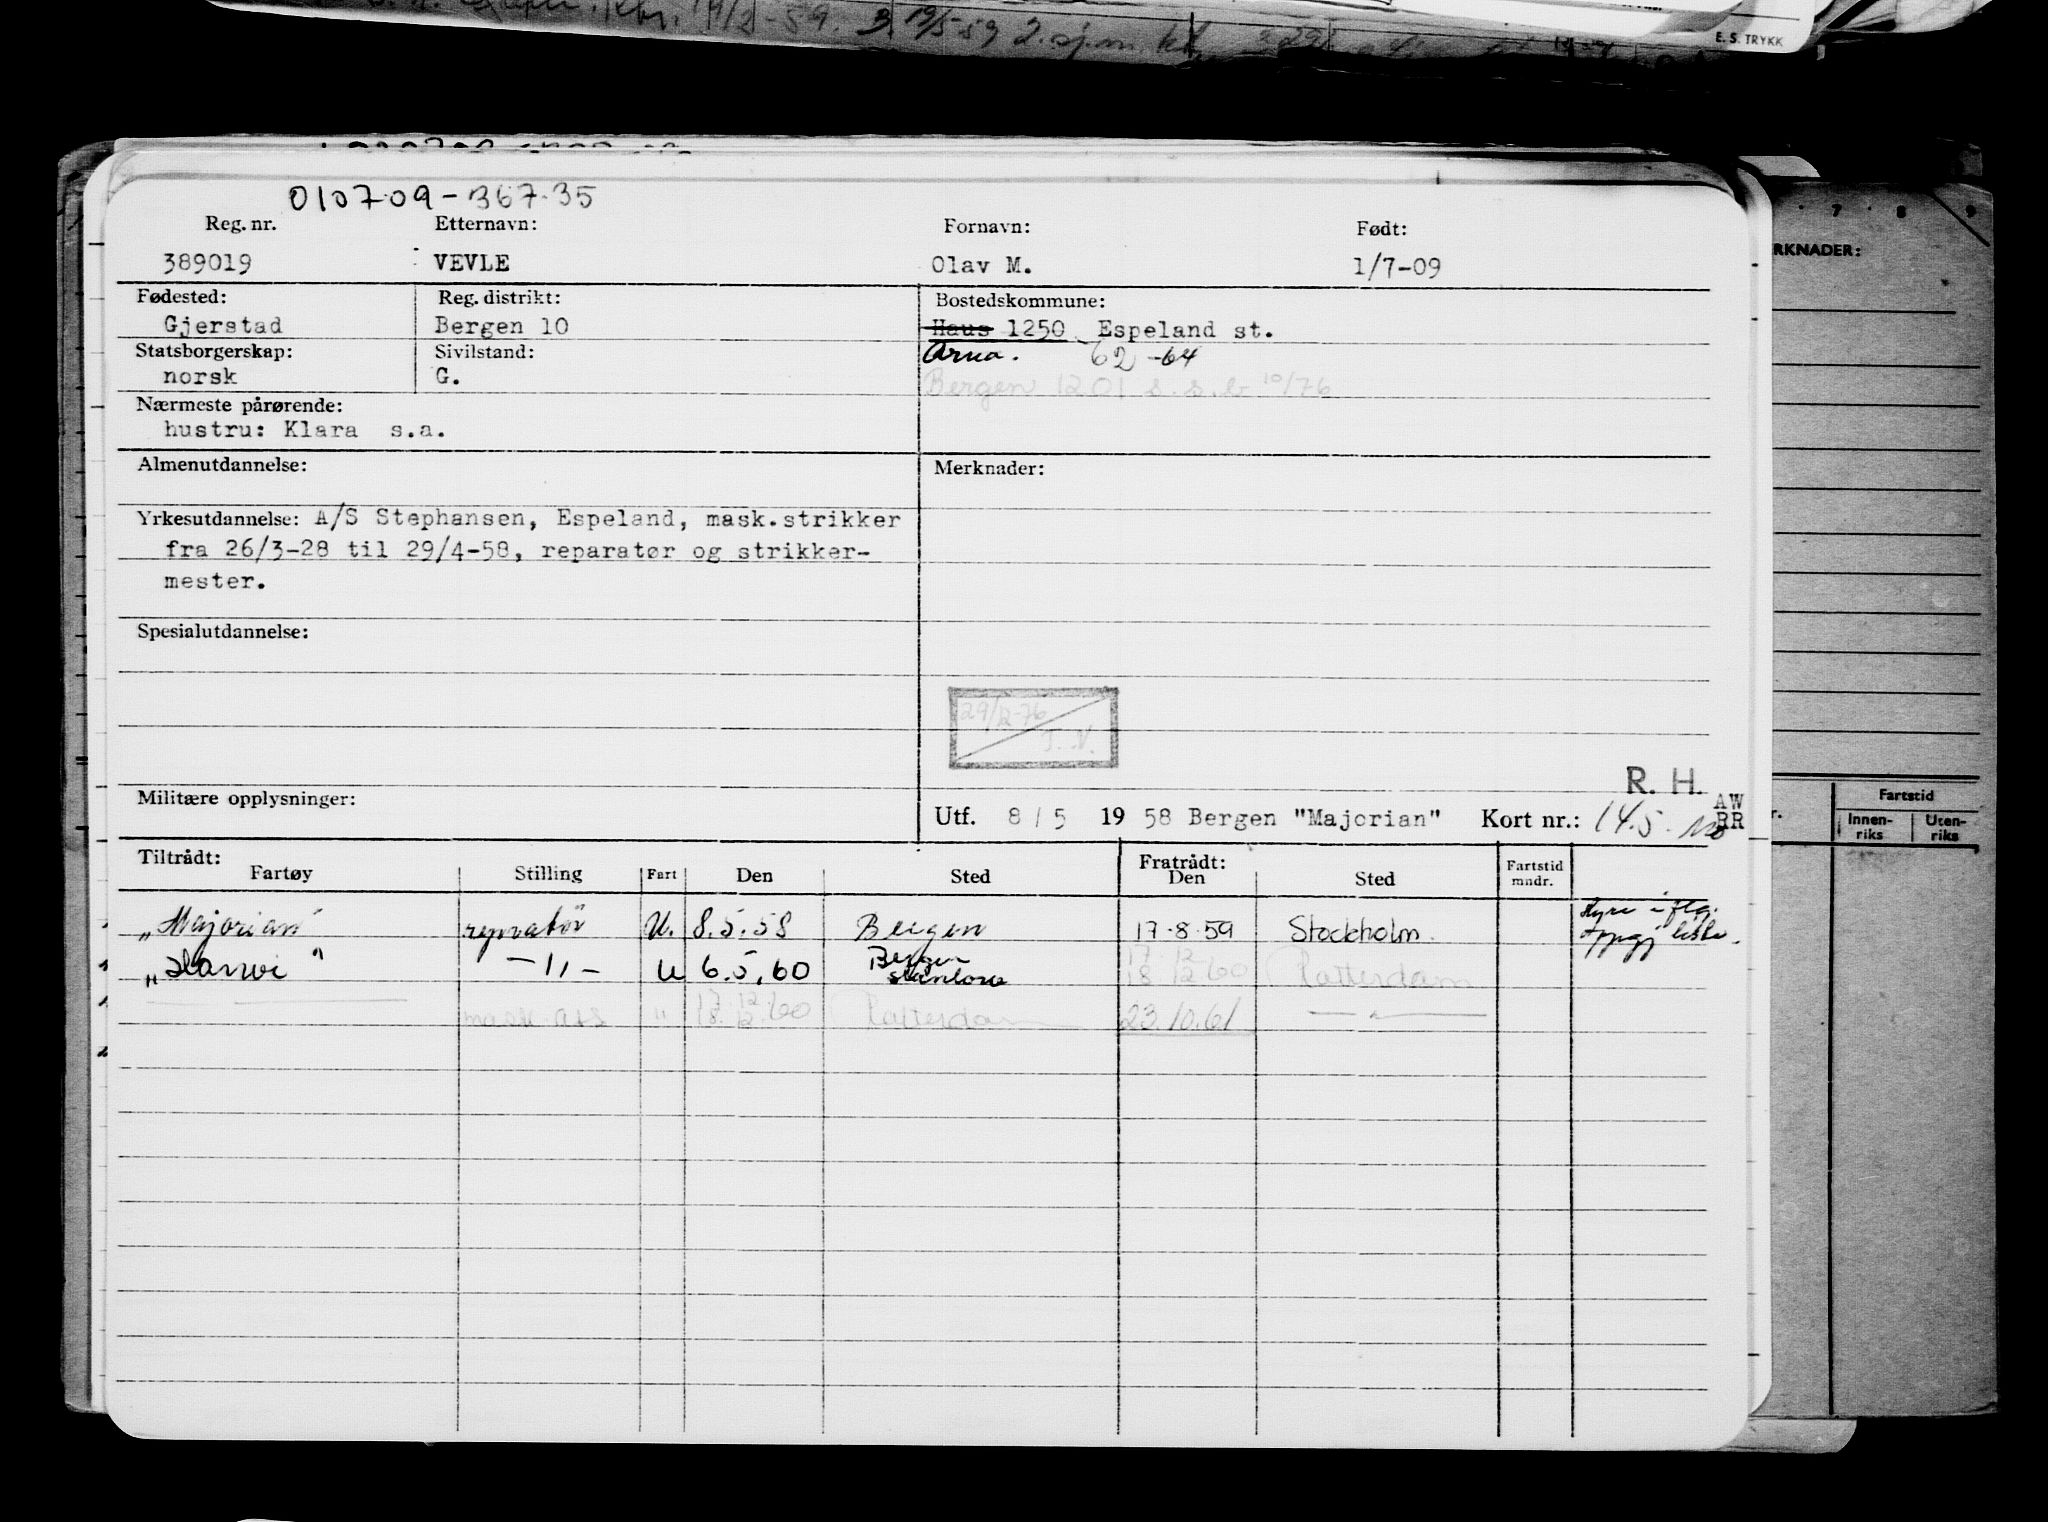 E. S. TRYKK
010709-367.35
Reg. nr. Etternavn: Fornavn: Født:
389019 VEVLE Olav M. 1/7-09
Fødested: Reg. distrikt: Bostedskommune:
Gjerstad Bergen 10 Haus 1250 Espeland st.
Statsborgerskap: Sivilstand: Arna. 62-64
norsk G. Bergen 1201 s.s.b 10/76
Nærmeste pårørende:
hustru: Klara s.a.
Almenutdannelse: Merknader:
Yrkesutdannelse: A/S Stephansen, Espeland, mask.strikker
fra 26/3-28 til 29/4-58, reparatør og strikker-
mester.
Spesialutdannelse:
29/12-76
T. N.
R. H.
Militære opplysninger:
Utf. 8/5 19 58 Bergen "Majorian" Kort nr.: 14.5. AW
RR
Tiltrådt: Fratrådt:
Fartøy Stilling Fart Den Sted Den Sted Fartstid mndr.
"Majorian" reparatør U. 8.5.58 Bergen 17-8-59 Stockholm. Hyre i
liste.
6.5.60 Bergen 17.12
18.12.60 Rotterdam
mask. ass " 17.12.60
18.12. Rotterdam 23.10.61 — " —
7 8 9
RKNADER:
Fartstid
Innen-
riks Uten-
riks